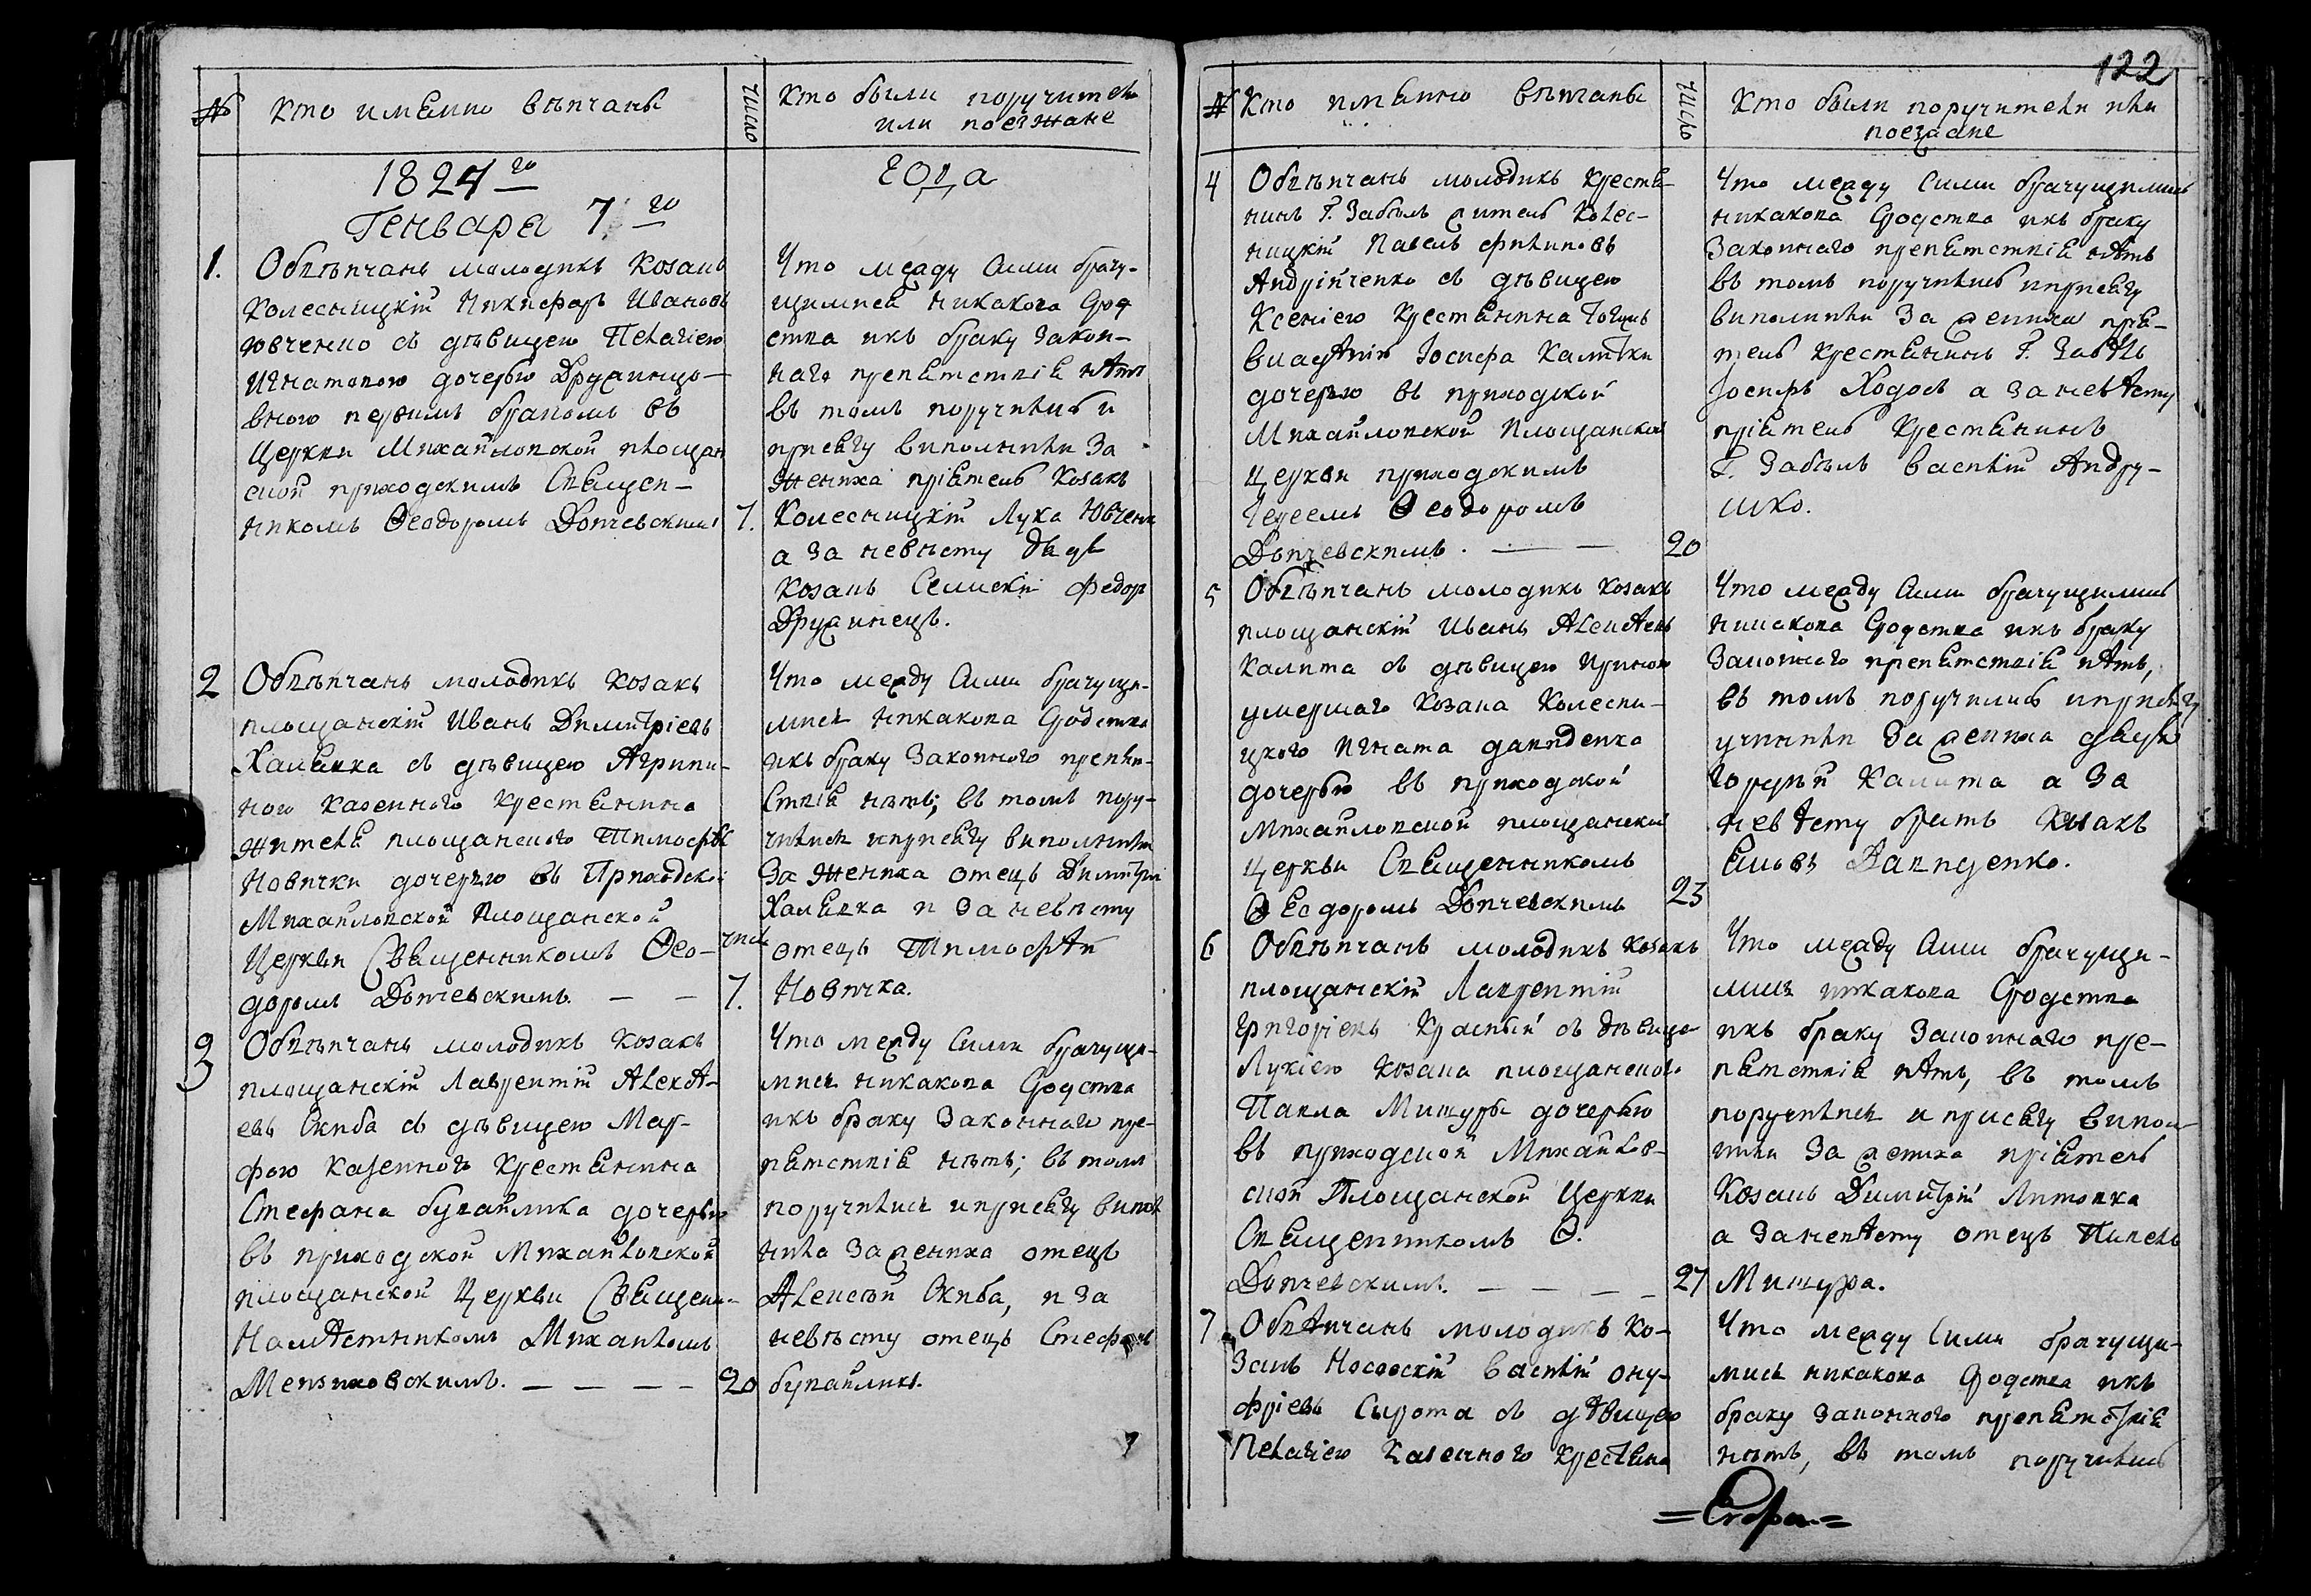 № Кто имѣнно вѣнчаны
число
Кто были поручители
или поезжане
1824го года
Генваря 7го
1. Обвѣнчанъ молодикъ козакъ
Колесницкій Никифоръ Ивановъ
Ювченко съ дѣвицею Пелагіею
Игнатовою дочерью Дружинцо-
вною первымъ бракомъ въ
Церкви Михайловской площан
ской приходскимъ Священ-
никомъ Ѳеодоромъ Домчевскимъ 7.
Что между симы брачу-
щимися никакого срод
ства икъ браку закон-
наго препятствія нѣтъ
въ томъ поручились и
присягу виполнили За
жениха пріятель козакъ
Колесницкій Лука Ювченко
а за невѣсту дядя
козакъ Семискій Федоръ
Дружинецъ.
2 Обвѣнчанъ молодикъ козакъ
площанскій Иванъ Димитріевъ
Халявка съ дѣвицею Агрипи-
ною казенного крестянина
жителя площанского Тимофѣя
Новички дочерью въ Приходской
Михайловской Площанской
Церкви Священникомъ Ѳео-
доромъ Домчевскимъ. — — 7.
числ
Что между симы брачущи-
мися никакова сродства
икъ браку законного препя-
ствія нѣтъ; въ томъ пору-
чились иприсягу виполнили
За жениха отецъ Димитрій
Халявка и за невѣсту
отецъ Тимофѣй
Новичка.
3 Обвѣнчанъ молодикъ козакъ
площанскій Лаврентій Алексѣ-
евъ Скиба съ дѣвицею Мар-
фою казенного крестянина
Стефана бувайлика дочерью
въ приходской Михайловской
площанской Церкви Священи-
Намѣстникомъ Михайломъ
Мензиковскимъ. — — — — 20
Что между симы брачущи-
мися никакова сродства
икъ браку законнаго пре-
пятствія нѣтъ; въ томъ
поручились иприсягу випол
нили зажениха отецъ
Алексѣй Скиба, и за
невѣсту отецъ Стефанъ
бувайликъ.
122
№ Кто имѣнно вѣнчаны
число
Кто были поручители или
поезжане
4 Обвѣнчанъ молодикъ крестя-
нинъ Г. Забѣлъ житель Колес-
ницкій Павелъ Филиповъ
Андрійченко съ дѣвицею
Ксеніею крестянина тогожъ
владѣнія Іосифа Калѣки
дочерью въ приходской
Михайловской Площанской
церкви приходскимъ
Іереемъ Ѳеодоромъ
Домчевскимъ. — — 20
Что между симы брачущимись
никакова сродства икъ браку
законнаго препятствія нѣтъ
въ томъ поручились иприсягу
виполнили За жениха прія-
тель крестянинъ Г. Забѣлъ
Іосифъ Ходосъ а за невѣсту
пріятель крестянинъ
Г. Забѣлъ василій Андру-
шко.
5 Обвѣнчанъ молодикъ козакъ
площанскій Иванъ Алексѣевъ
Калита съ дѣвицею Ириною
умершаго козака Колесни-
цкого Игната давиденка
дочерью въ приходской
Михайловской площанской
церкви Священникомъ
Ѳеодоромъ Домчевскимъ 23
Что между симы брачущимись
никакова сродства икъ браку
законнаго препятствія нѣтъ,
въ томъ поручились иприсягу
учинили За жениха дядя
Горд��й Калита а за
невѣсту братъ козакъ
Яковъ Давиденко.
6 Обвѣнчанъ молодикъ козакъ
площанскій Лаврентій
Григоріевъ Красный съ дѣвице
Лукіею козака площанского
Павла Мишуры дочерью
въ приходской Михайлов-
ской Площанской Церкви
Священникомъ Ѳ.
Домчевскимъ. — — — — 27
Что между симы брачущи-
мися никакова сродства
икъ браку законнаго пре-
пятствія нѣтъ, въ томъ
поручились и присягу випол-
нили За жениха пріятель
козакъ Димитрій Литовка
а заневѣсту отецъ Павелъ
Мишура.
7 Обвѣнчанъ молодикъ ко-
закъ Носовскій василій ону-
фріевъ Сырота съ дѣвицею
Пелагіею казенного крестяна
Что между симы брачущи-
мись никакова сродства икъ
браку законного препятствія
нѣтъ, въ томъ поручились